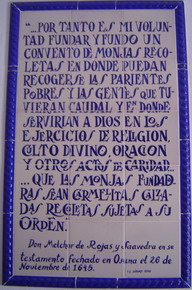 "...POR TANTO ES MI VOLUN-
TAD FUNDAR Y FUNDO UN
CONVENTO DE MONJAS RECO-
LETAS EN DONDE PUEDAN
RECOGERSE LAS PARIENTES
POBRES Y LAS GENTES QUE TU-
VIERAN CAUDAL Y EN DONDE
SERVIRIAN A DIOS EN LOS
EJERCICIOS DE RELIGION,
CULTO DIVINO, ORACION
Y OTROS ACTOS DE CARIDAD...
...QUE LAS MONJAS FUNDADO-
RAS SEAN CARMELITAS CALZA-
DAS RECOLETAS SUJETAS A SU
ORDEN."
Don Melchor de Rojas y Saavedra en su
testamento fechado en Osuna el 26 de
Noviembre de 1645.